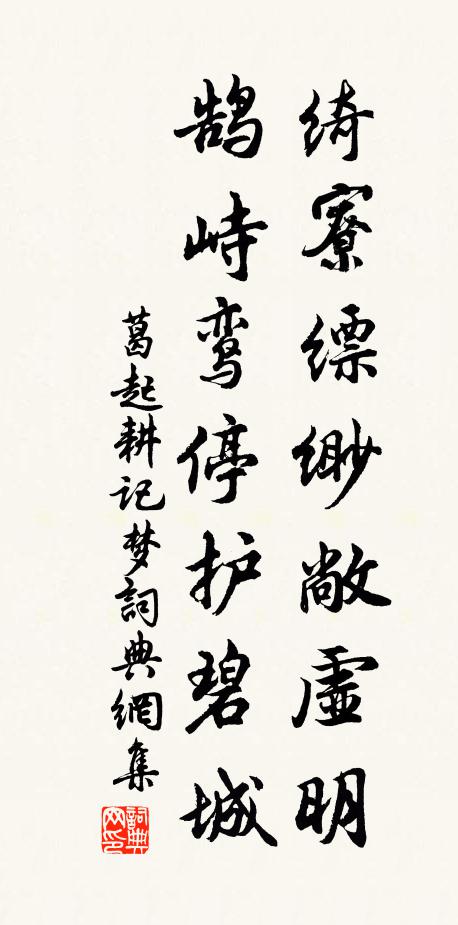 绮寮缥缈敞虚明
鹄峙鸾停护碧城
葛起耕记梦詞典網集
詞典
网印